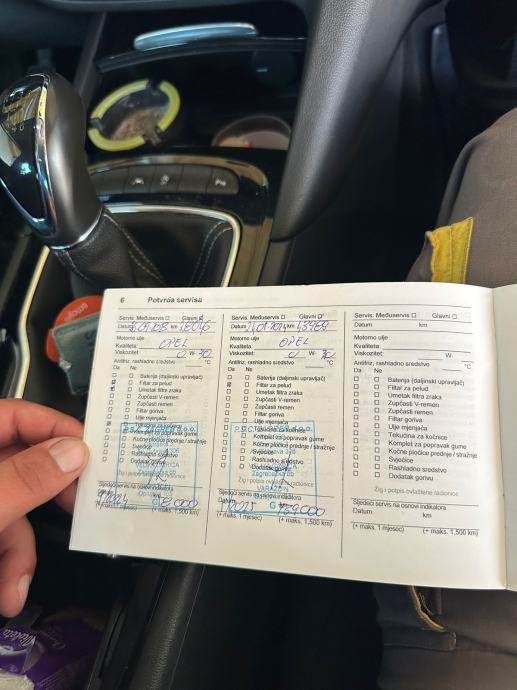 6 Potvrda servisa
Servis: Međuservis Glavni
Datum km
Motorno ulje
Kvaliteta: OPEL
Viskozitet: 0 W- 20
Antifriz, rashladno sredstvo °C
Da Ne
Baterija (daljinski upravljač)
Filtar za pelud
Umetak filtra zraka
Zupčasti V-remen
Zupčasti remen
Filtar goriva
Ulje mjenjača
Tekućina za kočnice
Komplet za popravak gume
Kočne pločice prednje / stražnje
Svjećice
Rashladno sredstvo
Dodatak gorivu
Sljedeći servis na osnovi indikatora
Datum km
(+ maks. 1 mjesec) (+ maks. 1,500 km)
Servis: Međuservis Glavni
Datum km
Motorno ulje
Kvaliteta: OPEL
Viskozitet: 0 W-
Antifriz, rashladno sredstvo °C
Da Ne
Baterija (daljinski upravljač)
Filtar za pelud
Umetak filtra zraka
Zupčasti V-remen
Zupčasti remen
Filtar goriva
Ulje mjenjača
Tekućina za kočnice
Komplet za popravak gume
Kočne pločice prednje / stražnje
Svjećice
Rashladno sredstvo
Dodatak gorivu
VARAŽDIN
Sljedeći servis na osnovi indikatora
Datum km
(+ maks. 1 mjesec) (+ maks. 1,500 km)
Servis: Međuservis Glavni
Datum km
Motorno ulje
Kvaliteta:
Viskozitet: W-
Antifriz, rashladno sredstvo °C
Da Ne
Baterija (daljinski upravljač)
Filtar za pelud
Umetak filtra zraka
Zupčasti V-remen
Zupčasti remen
Filtar goriva
Ulje mjenjača
Tekućina za kočnice
Komplet za popravak gume
Kočne pločice prednje / stražnje
Svjećice
Rashladno sredstvo
Dodatak gorivu
Žig i potpis ovlaštene radionice
Sljedeći servis na osnovi indikatora
Datum km
(+ maks. 1 mjesec) (+ maks. 1,500 km)